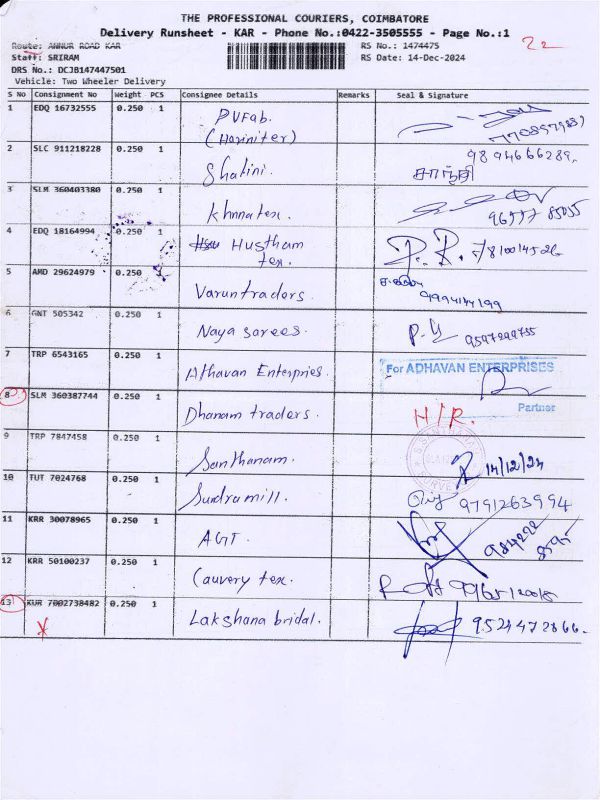 THE PROFESSIONAL COURIERS, COIMBATORE
Delivery Runsheet - KAR - Phone No.:0422-3505555 - Page No.:1
22
Route: ANNUR ROAD KAR
RS No.: 1474475
Staff: SRIRAM
RS Date: 14-Dec-2024
DRS No.: DCJB147447501
Vehicle: Two Wheeler Delivery
S No Consignment No Weight PCS Consignee Details Remarks Seal & Signature
1 EDQ 16732555 0.250 1 PVFab.
2 SLC 911218228 0.250 1 Shalini. 9894666289
சாந்தி
3 SLM 360403380 0.250 1 khnnatex. 96777 85055
4 EDQ 18164994 0.250 1 Hustham
tex. P. R. 7810014526
5 AMD 29624979 0.250 1 Varuntraders 9994144199
6 GNT 505342 0.250 1 Naya sarees. 9597299755
7 TRP 6543165 0.250 1 Athavan Enterpries. For ADHAVAN ENTERPRISES
Partner
8 SLM 360387744 0.250 1 Dhanam traders. H/R.
9 TRP 7847458 0.250 1 Santhanam. 14/12/24
10 TUT 7024768 0.250 1 Sundramill. 9791263994
11 KRR 30078965 0.250 1 AGT.
12 KRR 50100237 0.250 1 Cauvery tex.
13 KUR 7002738482 0.250 1 Lakshana bridal. 9524472866.